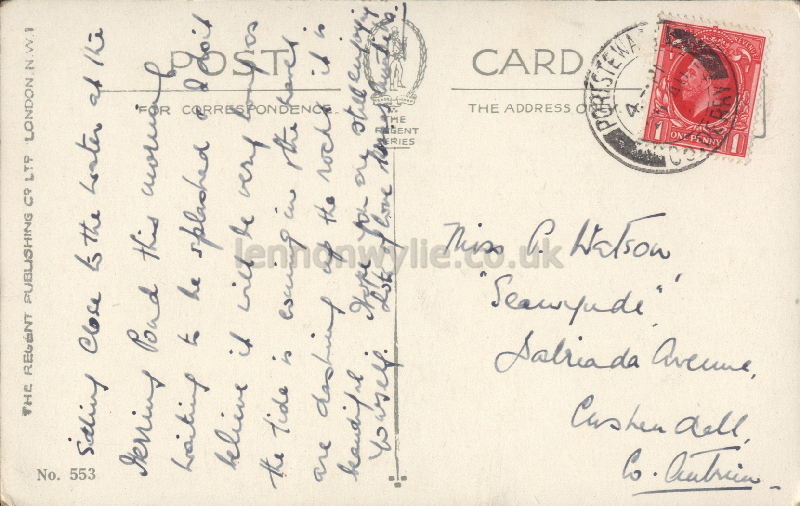 POST CARD
FOR CORRESPONDENCE
THE ADDRESS ON
THE
REGENT
SERIES
THE REGENT PUBLISHING Co LTD LONDON. N.W.1
No. 553
PORTSTEWART
ONE PENNY
1 1
Sitting close to the water at the
Herring Pond this morning
waiting to be splashed & I don't
believe it will be very long as
the tide is coming in & the waves
are dashing up the rocks it is
beautiful. Hope you are still enjoying
yourself. Lots of love
Miss P. Watson
"Seawynde",
Dalriada Avenue,
Cushendall,
Co. Antrim
lennonwylie.co.uk